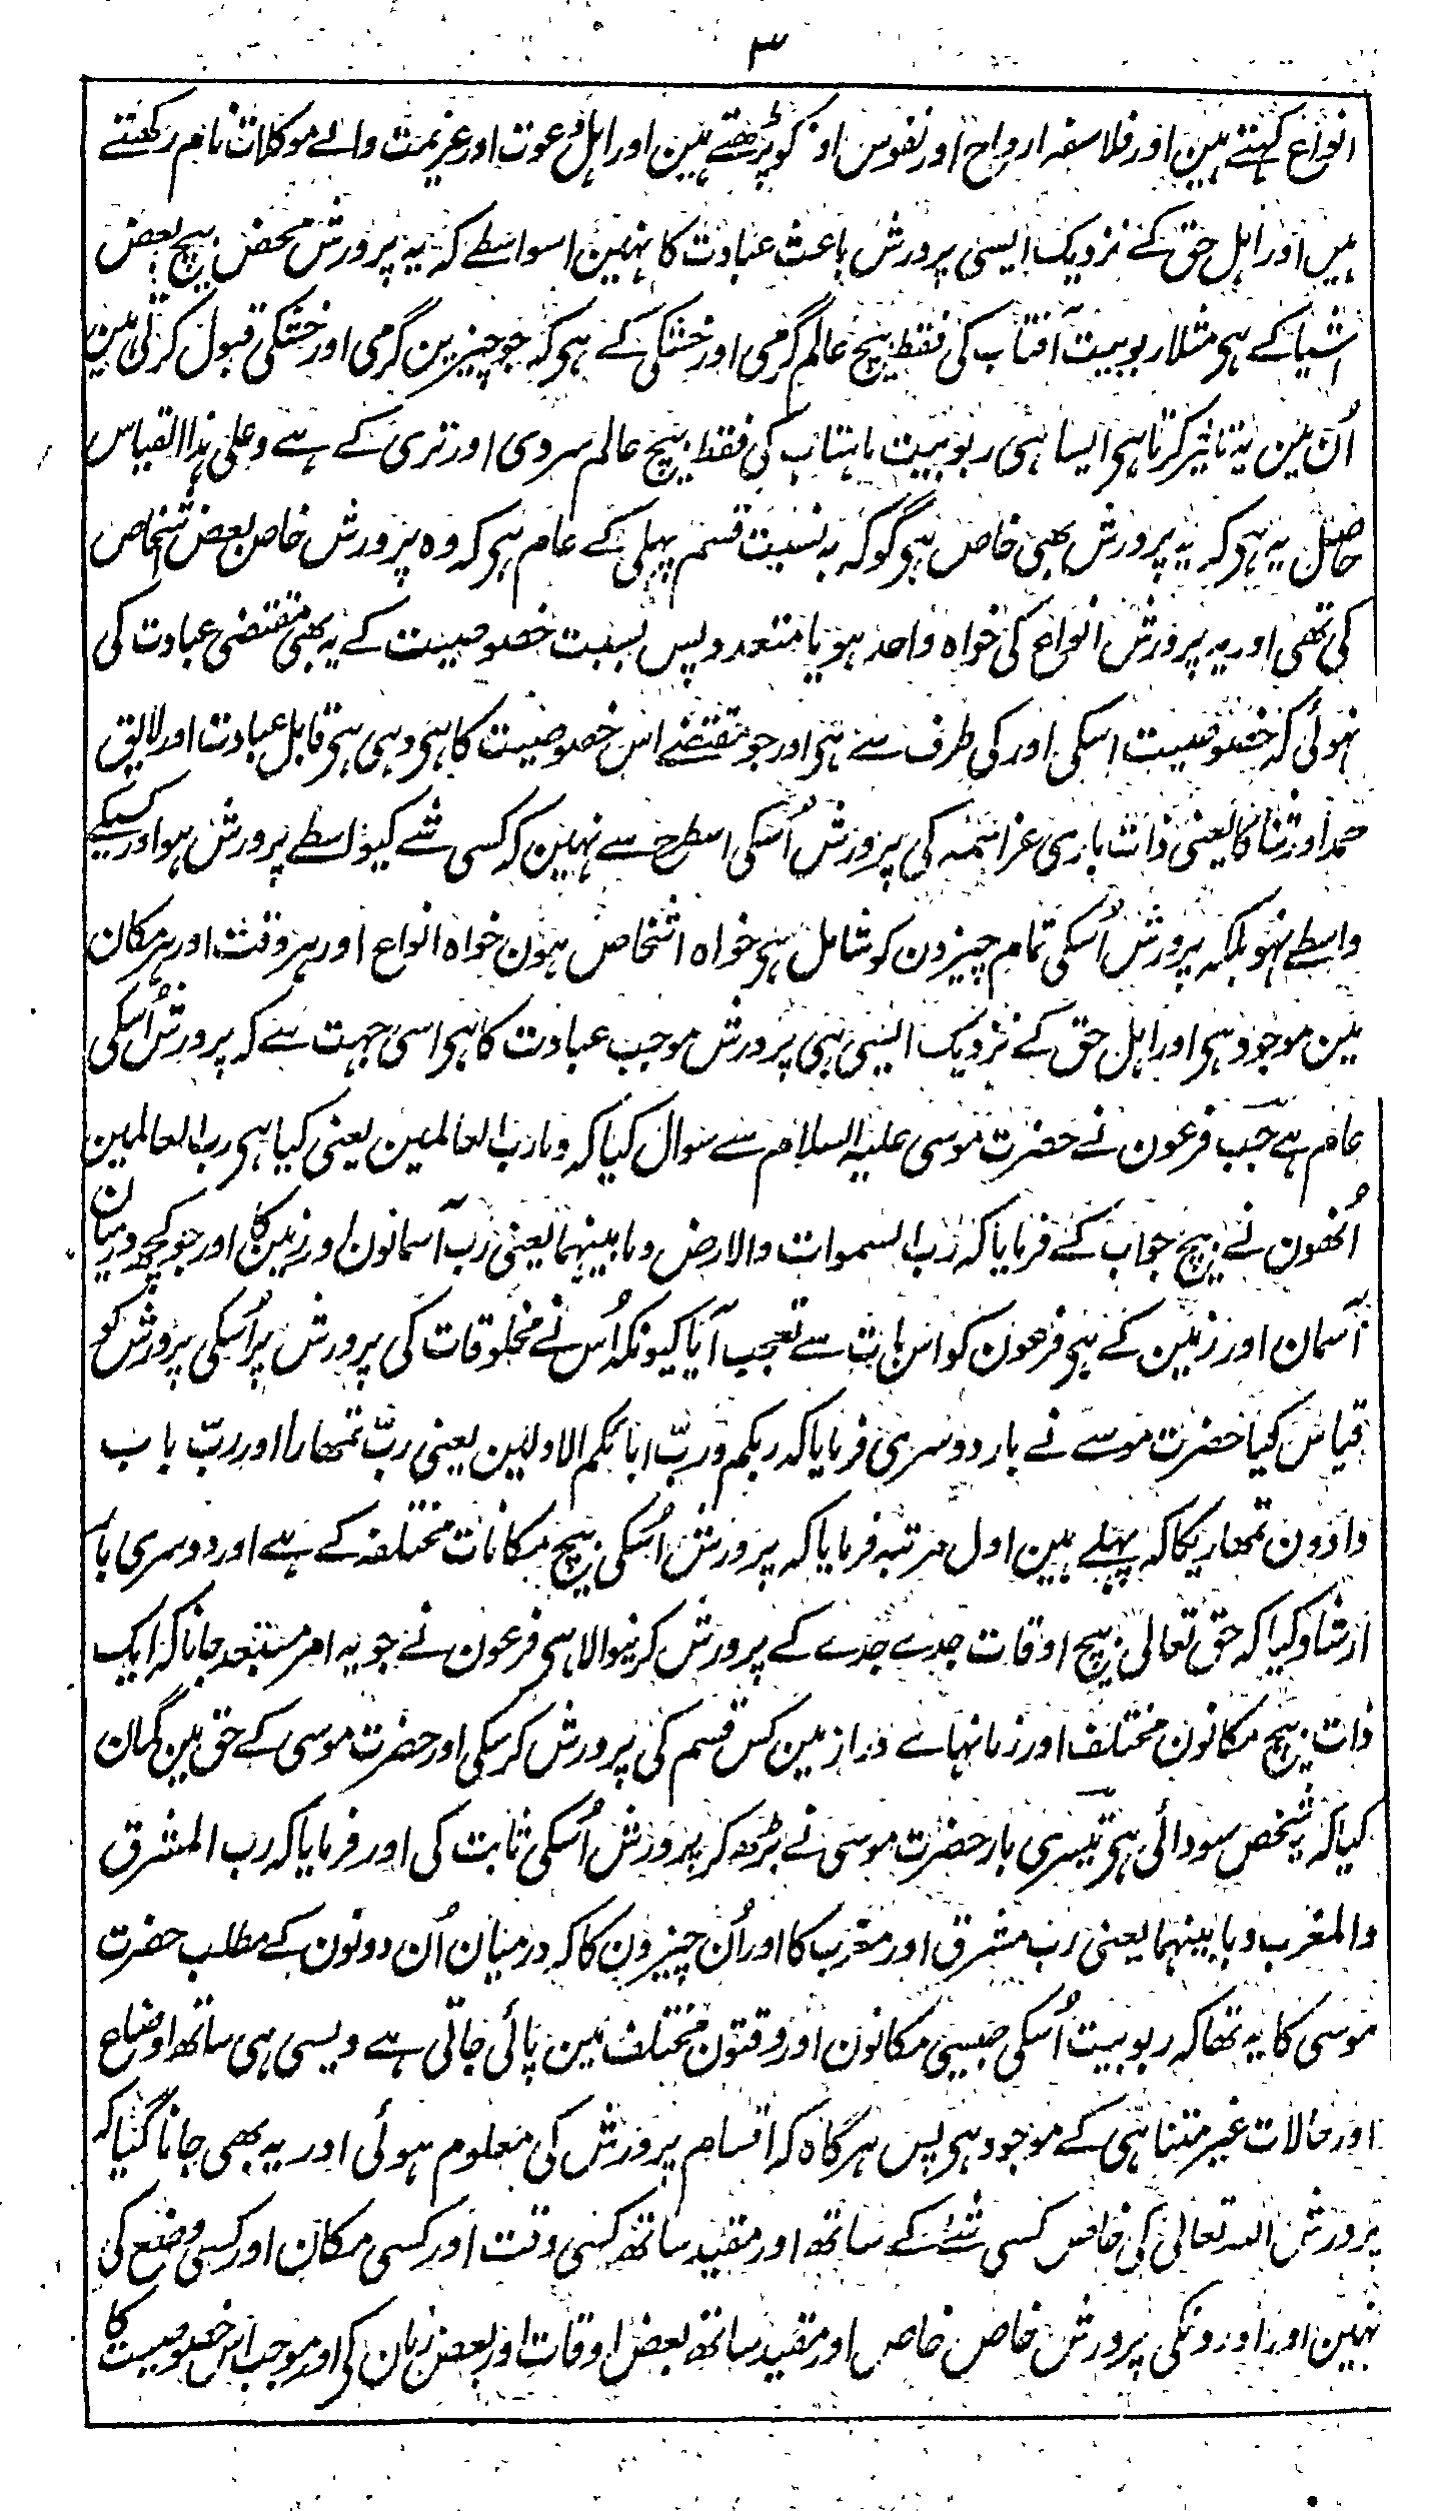 ۳
انواع کہتے ہین اور فلاسفہ ارواح اور نفوس او کو پڑھتے ہین اور اہل دعوت اور عزیمت والے موکلات نام رکھتے
ہیں اور اہل حق کے نزدیک ایسی پرورش باعث عبادت کا نہین اسواسطے کہ یہ پرورش محض بیچ بعض
اشیا کے ہی مثلا ربوبیت آفتاب کی فقط بیچ عالم گرمی اور خشکی کے ہی کہ جو چیزین گرمی اور خشکی قبول کرتی ہین
اُن مین یہ تاثیر کرتا ہی ایسا ہی ربوبیت ماہتاب کی فقط بیچ عالم سردی اور تری کے ہے وعلی ہذا القیاس
حاصل یہ ہی کہ یہ پرورش بھی خاص ہی گو کہ بہ نسبت قسم پہلی کے عام ہی کہ وہ پرورش خاص بعض اشخاص
کی تھی اور یہ پرورش انواع کی خواہ واحد ہو یا متعدد پس بسبب خصوصیت کے یہ بھی مقتضی عبادت کی
نہوئی کہ خصوصیت اسکی اور کی طرف سے ہی اور جو مقتضے اس خصوصیت کا ہی وہی ہی قابل عبادت اور لایق
حمد اور ثنا کا یعنی ذات باری عز اسمہ کی پرورش اُسکی اسطرح سے نہین کہ کسی شے کیواسطے پرورش ہو اور کسیکے
واسطے نہو بلکہ پرورش اُسکی تمام چیزون کو شامل ہی خواہ اشخاص ہون خواہ انواع اور ہر وقت اور ہر مکان
مین موجود ہی اور اہل حق کے نزدیک ایسی ہی پرورش موجب عبادت کا ہی اسی جہت سے کہ پرورش اُسکی
عام ہے جب فرعون نے حضرت موسی علیہ السلام سے سوال کیا کہ وما رب العالمین یعنی کیا ہی رب العالمین
اُنھون نے بیچ جواب کے فرمایا کہ رب السموات والارض وما بینہما یعنی رب آسمانون اور زمین کا اور جو کچھ درمیان
آسمان اور زمین کے ہی فرعون کو اس بات سے تعجب آیا کیونکہ اُس نے مخلوقات کی پرورش پر اُسکی پرورش کو
قیاس کیا حضرت موسے نے بار دوسری فرمایا کہ ربکم ورب ابائکم الاولین یعنی ربّ تمھارا اور ربّ باپ
دادون تمھاریکا کہ پہلے ہین اول مرتبہ فرمایا کہ پرورش اُسکی بیچ مکانات مختلفہ کے ہے اور دوسری بار
ارشاد کیا کہ حق تعالی بیچ اوقات جدے جدے کے پرورش کرنیوالا ہی فرعون نے جو یہ امر مستبعد جانا کہ ایک
ذات بیچ مکانون مختلف اور زمانہائے دراز مین کس قسم کی پرورش کرسکی اور حضرت موسی کے حق مین گمان
کیا کہ یہ شخص سودائی ہی تیسری بار حضرت موسی نے بڑھ کر پرورش اُسکی ثابت کی اور فرمایا کہ رب المشرق
والمغرب وما بینہما یعنی رب مشرق اور مغرب کا اور اُن چیزون کا کہ درمیان اُن دونون کے مطلب حضرت
موسی کا یہ تھا کہ ربوبیت اُسکی جیسی مکانون اور وقتون مختلف مین پائی جاتی ہے ویسی ہی ساتھ اوضاع
اور حالات غیر متناہی کے موجود ہی پس ہرگاہ کہ اقسام پرورش کی معلوم ہوئی اور یہ بھی جانا گیا کہ
پرورش اللہ تعالی کی خاص کسی شئے کے ساتھ اور مقید ساتھ کسی وقت اور کسی مکان اور کسی وضع کی
نہین اور اورونکی پرورش خاص خاص اور مقید ساتھ بعض اوقات اور بعض زمان کی اور موجب اس خصوصیت کا